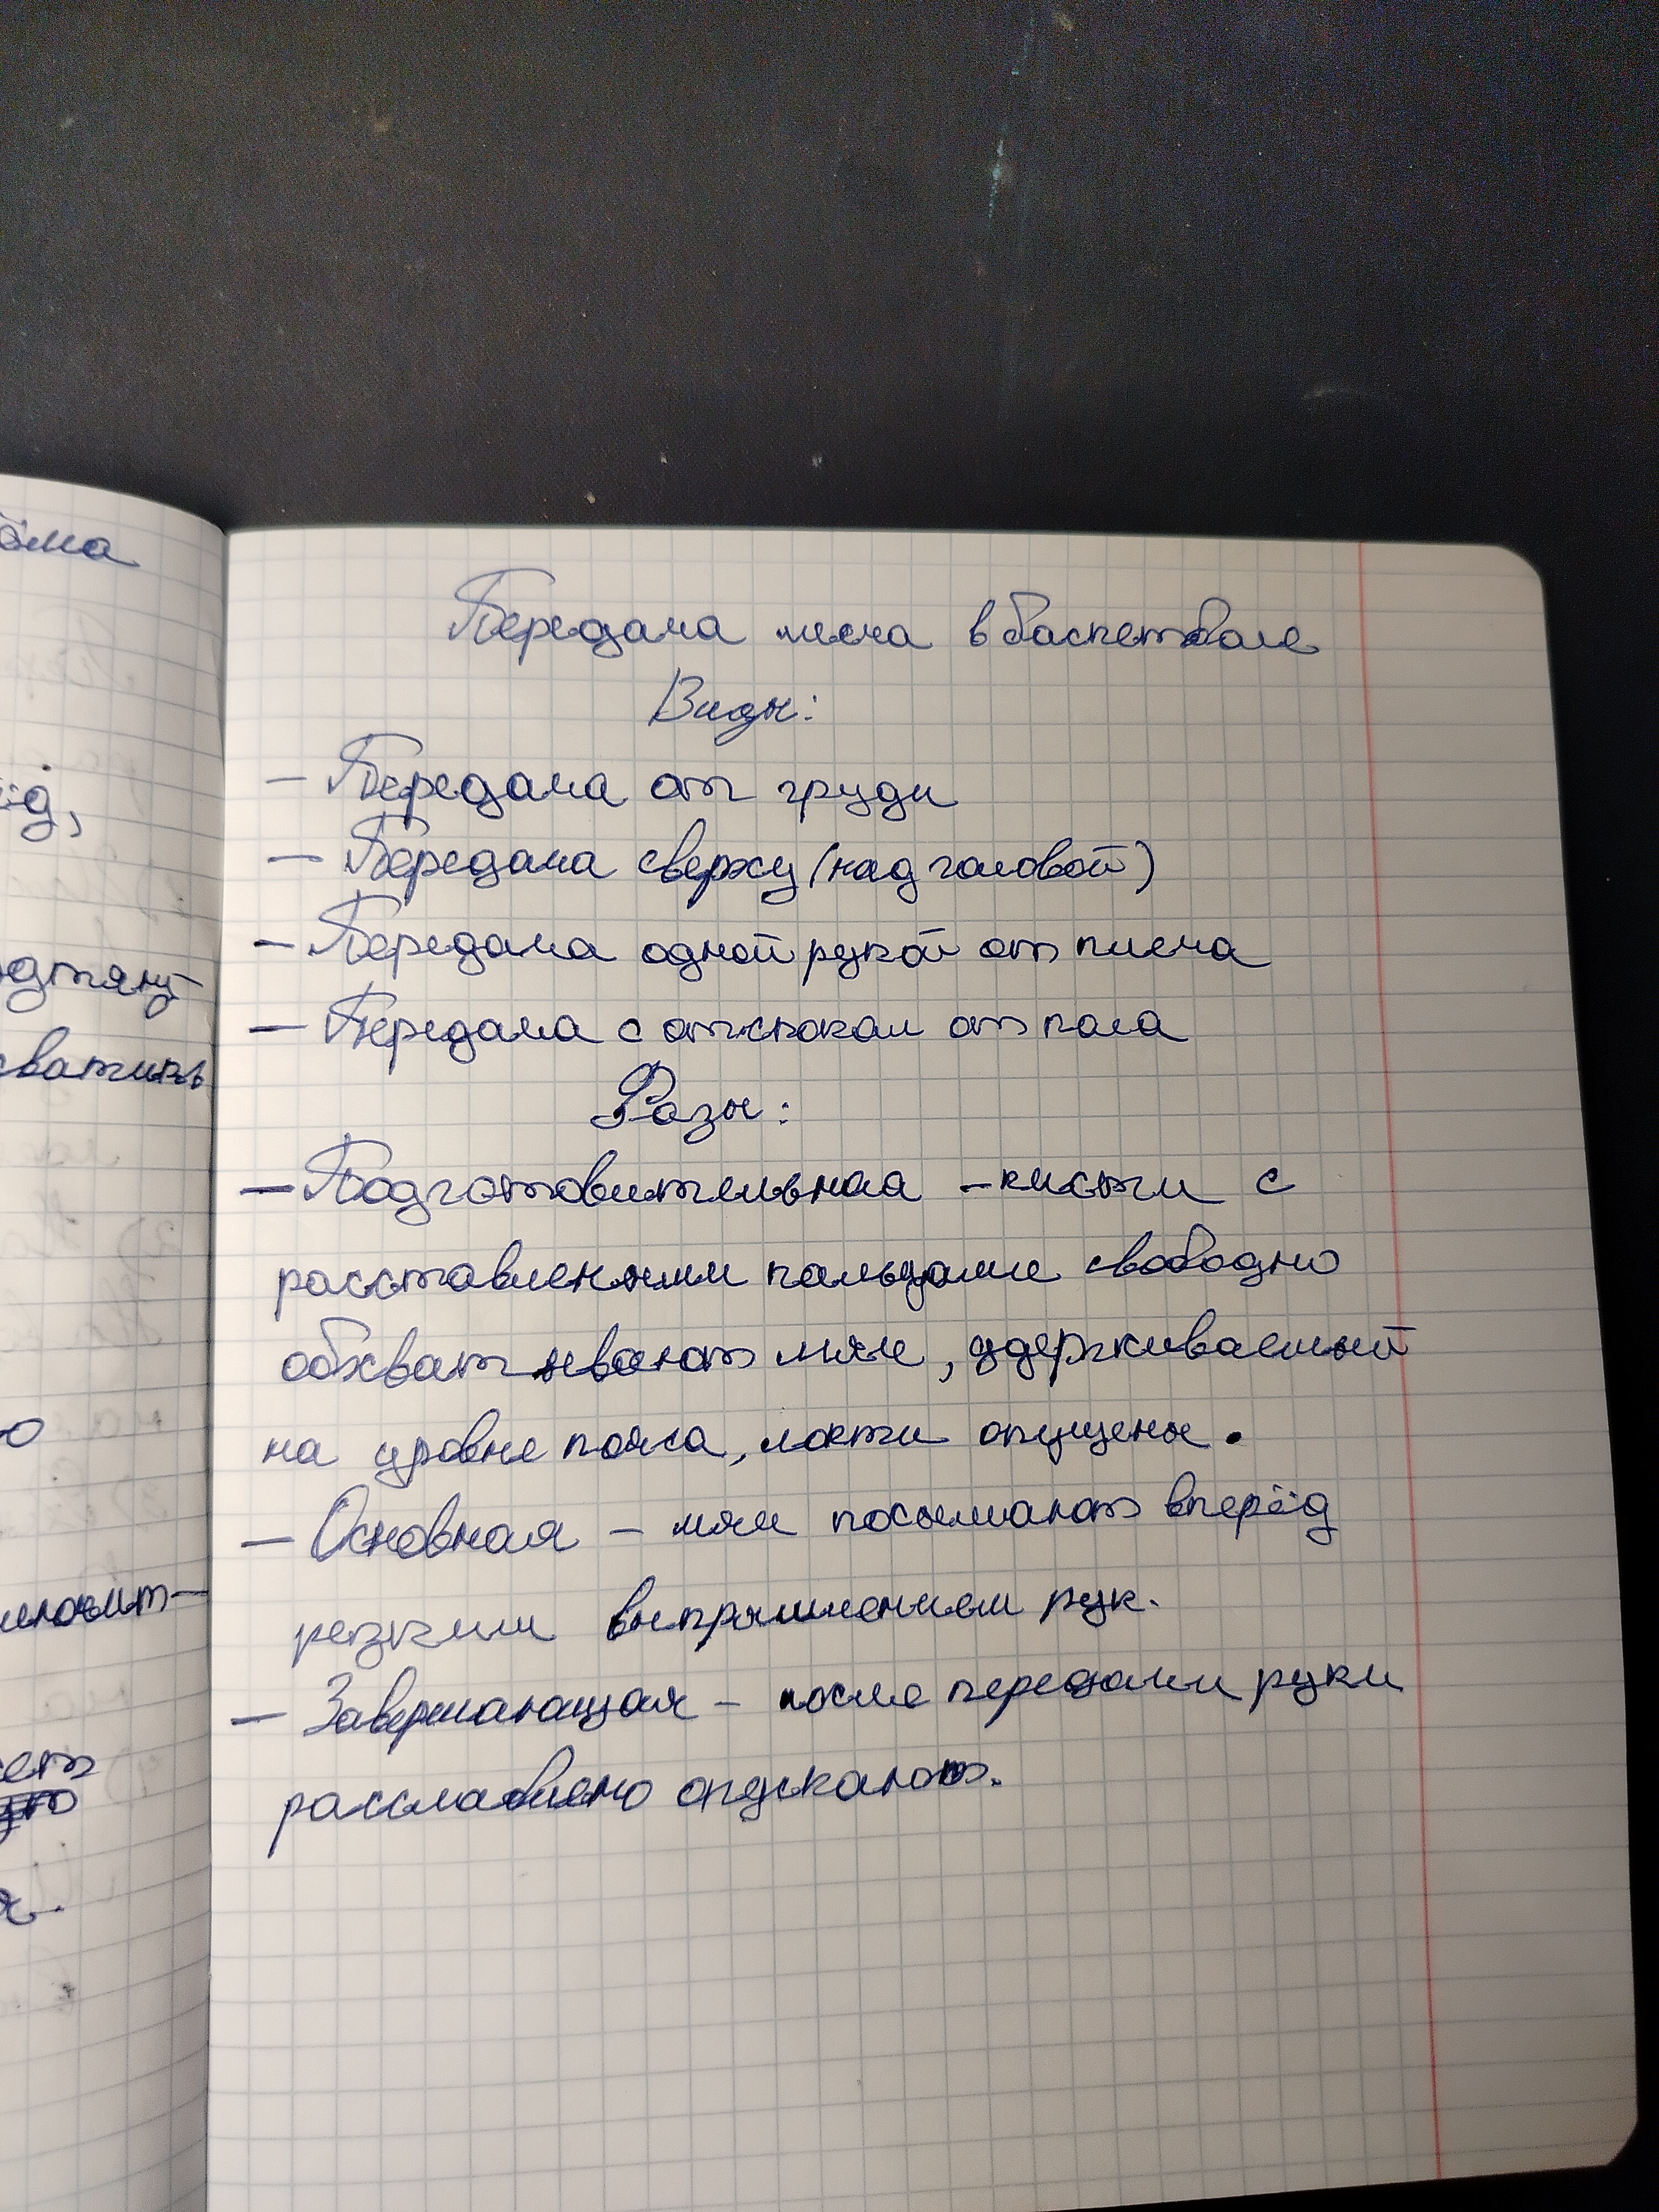 Передача меча в баскетболе
Виды:
- Передача от груди
- Передача сверху (над головой)
- Передача одной рукой от плеча
- Передача с отскоком от пола
Фазы:
- Подготовительная - кисти с
расставленными пальцами свободно
обхватывают мяч, удерживаемый
на уровне пояса, локти опущены.
- Основная - мяч посылают вперёд
резким выпрямлением рук.
- Завершающая - после передачи руки
расслаблено опускают.